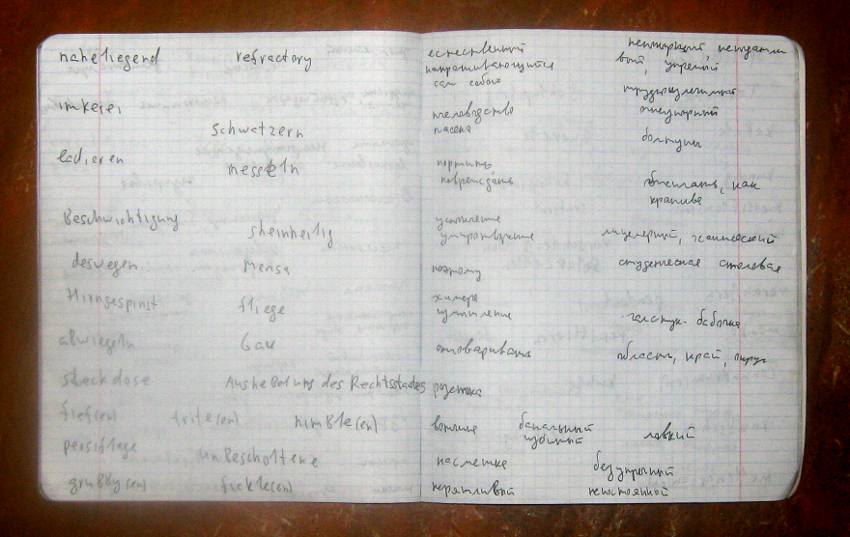 naheliegend refractory
imkerei
schwatzern
ladieren
nesseln
Beschwichtigung sheinheilig
deswegen Mensa
Hirngespinst fliege
abwiegeln Gau
steckdose Aushebolung des Rechtsstaates
fief(en) trite(en) nimble(en)
persiflage
unbescholtene
grubby(en) fickle(en)
естественный
напрашивающийся
сам собой
пчеловодство
пасека
портить
повреждать
усыпление
умиротворение
поэтому
химера
отговаривать
розетка
вотчина
насмешка
неряшливый
вый, упрямый
огнеупорный
болтуны
обжигать, как
крапива
лицемерный, ханжеский
студенческая столовая
галстук-бабочка
область, край, округ
банальный
избитый
ловкий
безупречный
непостоянный